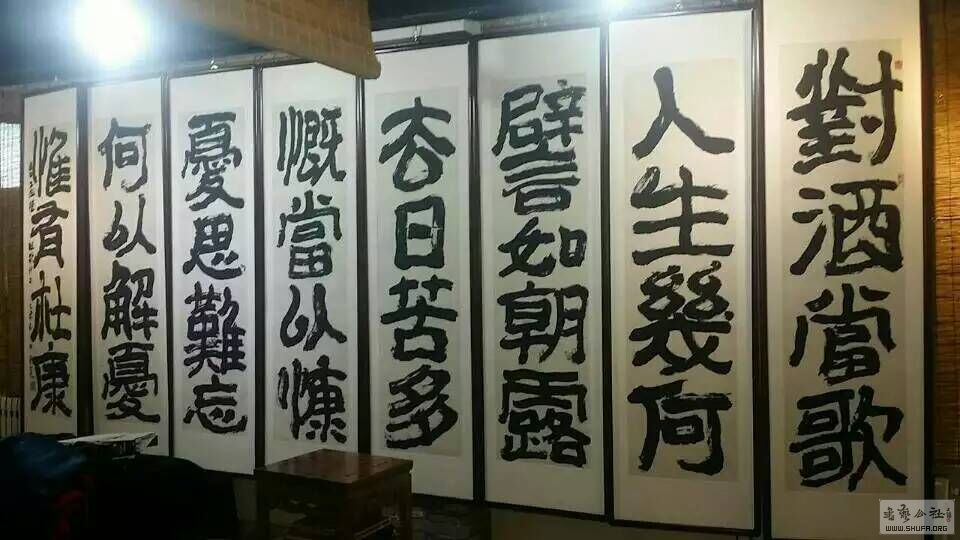 對酒當歌
人生幾何
譬如朝露
去日苦多
慨當以慷
憂思難忘
何以解憂
惟有杜康
公社
WWW.SHUFA.ORG